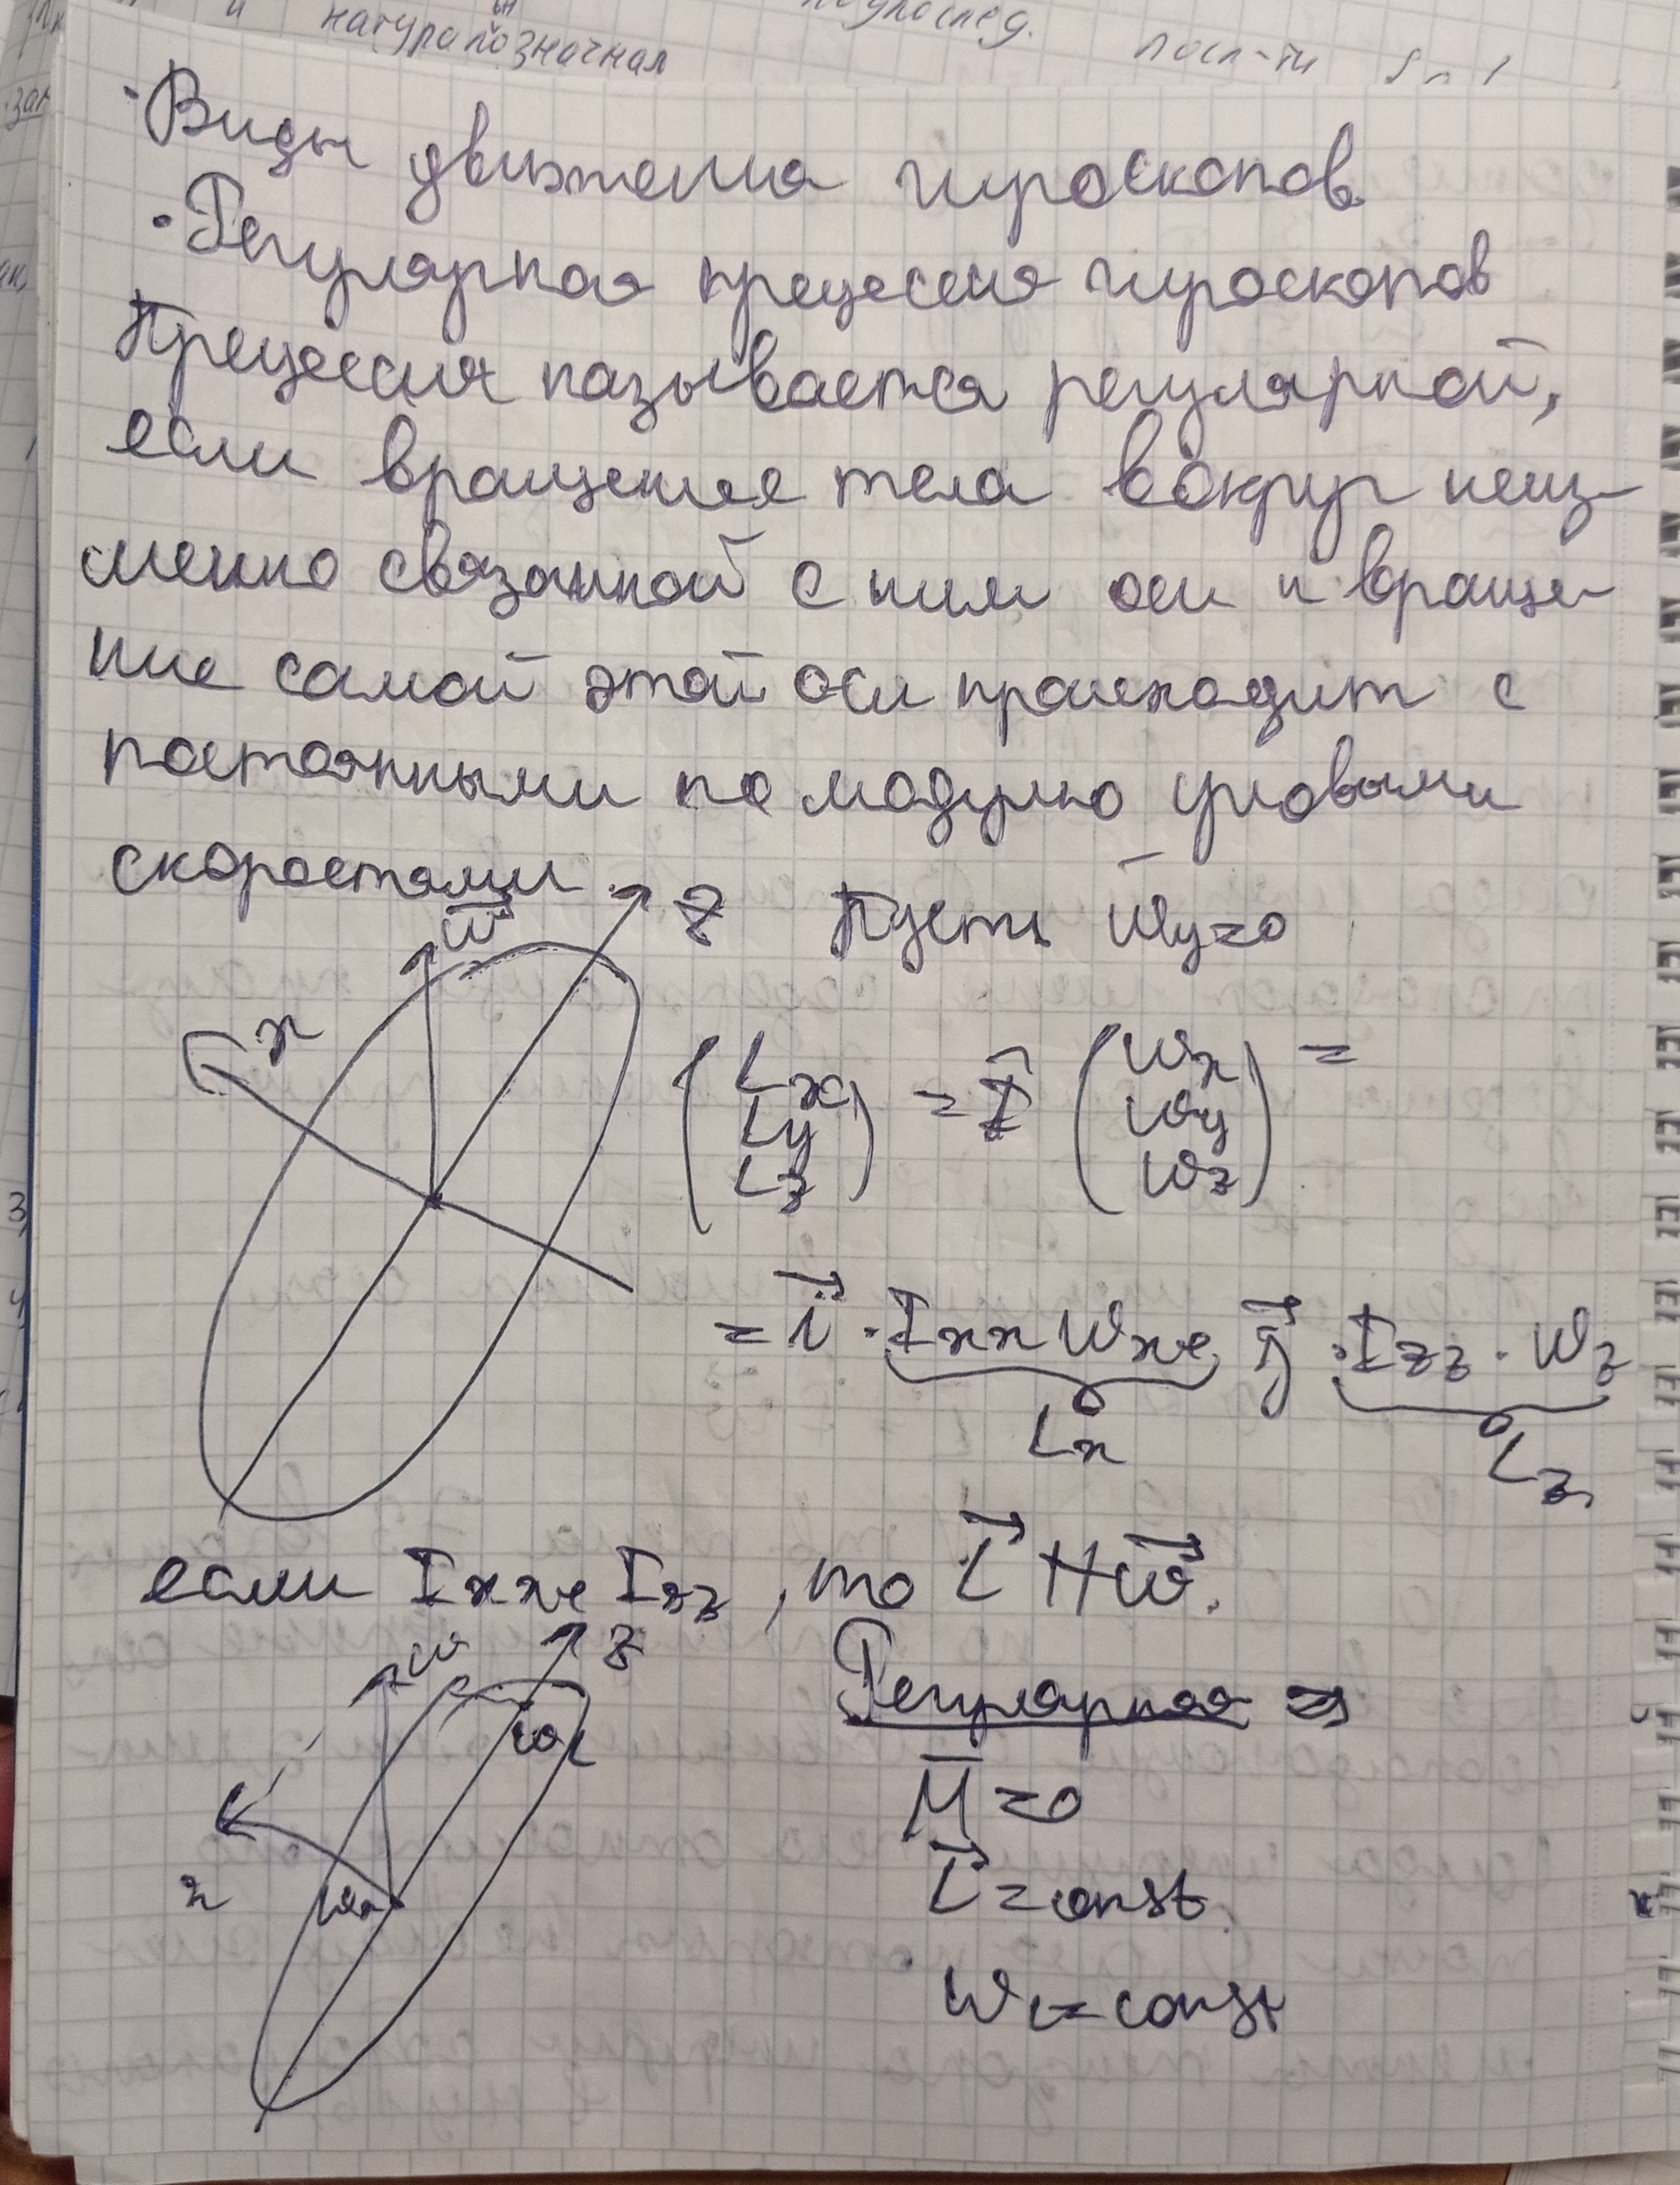 и натуральнозначная
подпослед.
посл-ти
• Виды движения гироскопов.
• Регулярная прецессия гироскопов
Прецессия называется регулярной,
если вращение тела вокруг неиз-
менно связанной с ним оси и враще-
ние самой этой оси происходит с
постоянными по модулю угловыми
скоростями.
w⃗ z Пусть wy=0
x
(Lx Ly Lz) = Î (wx wy wz) =
= i⃗ · Ixx wx + j⃗ · Izz · wz
Lx Lz
если Ixx ≠ Izz, то L⃗ ∦ w⃗.
w z
Регулярная ⇒
M̄ = 0
L⃗ = const
x wx
wz = const